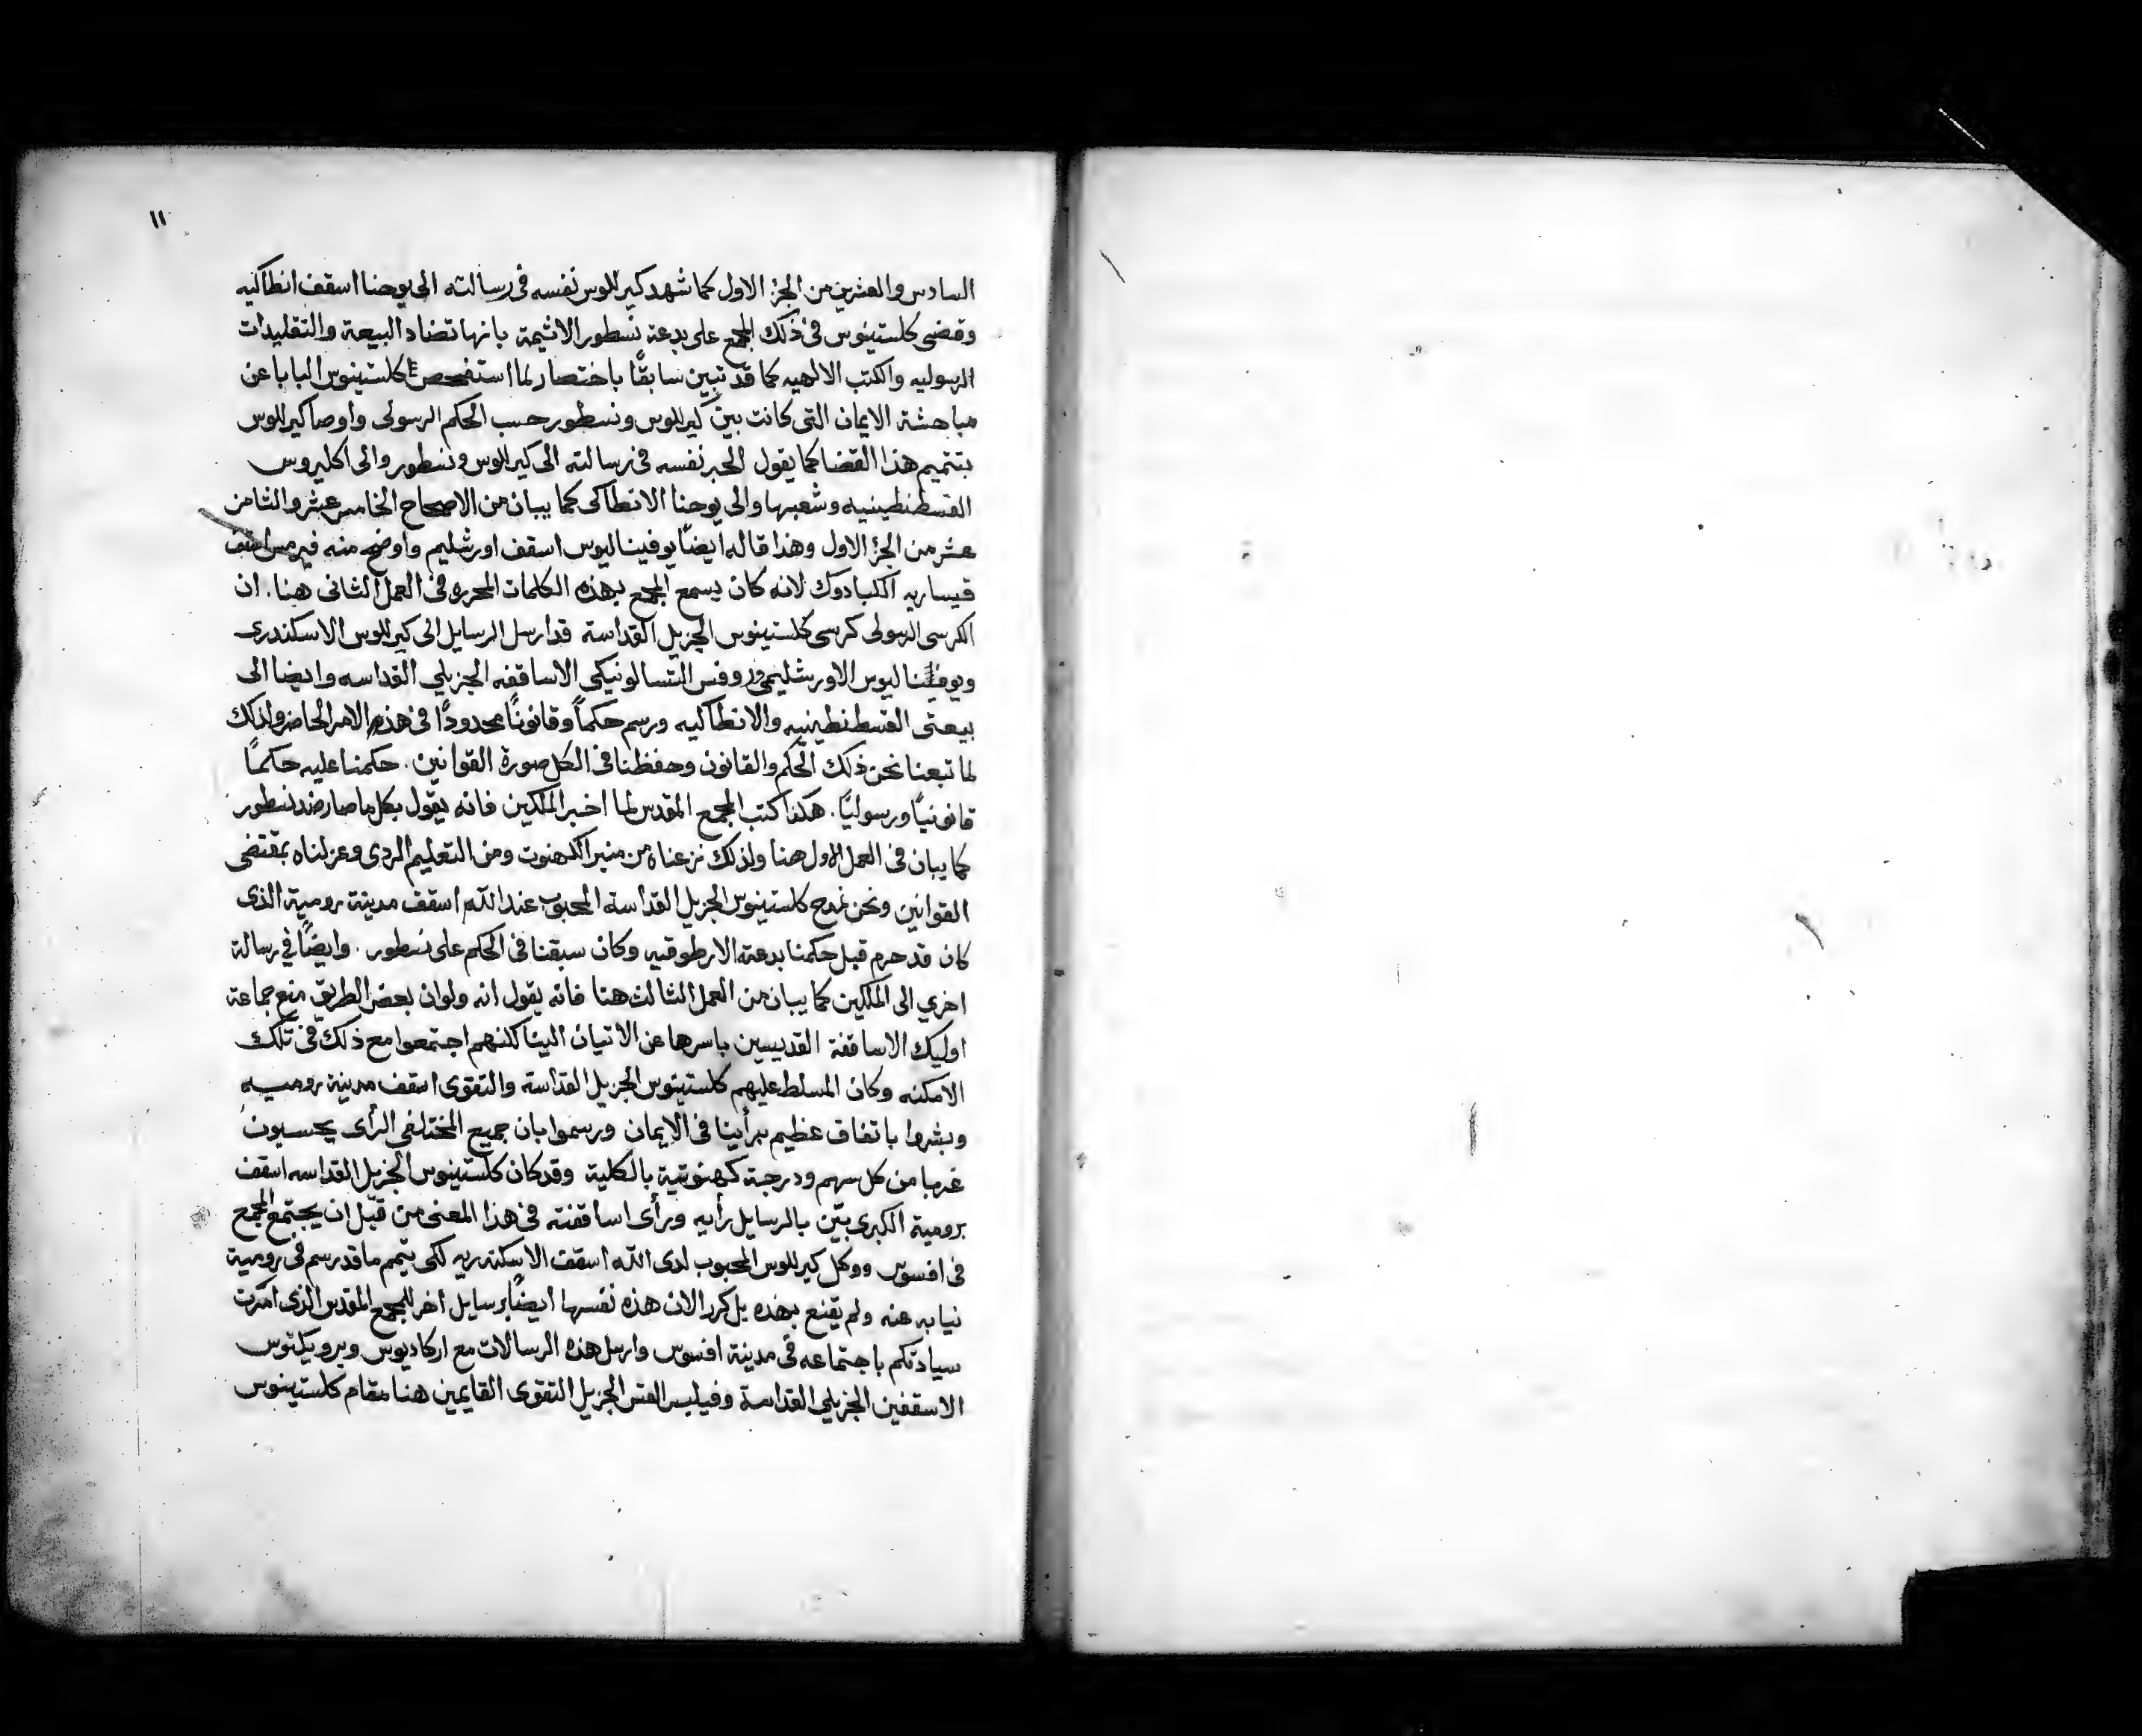 ١١
السادس والعشرين من الجزء الاول كما شهد كيرللوس نفسه في رسالته الى يوحنا اسقف انطاكيه
وقضى كلستينوس في ذلك المجمع على بدعة نسطور الاثيمة بانها تضاد البيعة والتقليدات
الرسوليه والكتب الالهيه كما قد تبين سابقًا باختصار لما استفحص كلستينوس البابا عن
مباحثة الايمان التي كانت بين كيرللوس ونسطور حسب الحكم الرسولى واوصا كيرللوس
بتتميم هذا القضا كما يقول الحبر نفسه في رسالته الى كيرللوس ونسطور والى اكليروس
القسطنطينيه وشعبها والى يوحنا الانطاكى كما يبان من الاصحاح الخامس عشر والثامن
عشر من الجزؤ الاول وهذا قاله ايضًا يوفيناليوس اسقف اورشليم واوضح منه فيرمس اسقف
قيساريه الكبادوك لانه كان يسمع المجمع بهذه الكلمات المحرره في العمل الثانى هنا. ان
الكرسى الرسولى كرسى كلستينوس الجزيل القداسة قد ارسل الرسايل الى كيرللوس الاسكندرى
ويوفيناليوس الاورشليمى وروفس التسالونيكى الاساقفه الجزيلي القداسه وايضا الى
بيعتى القسطنطينيه والانطاكيه ورسم حكماً وقانونًا محدودًا في هذه الامر الحاضر ولذلك
لما تبعنا نحن ذلك الحكم والقانون وحفظنا في الكل صورة القوانين. حكمنا عليه حكمًا
قانونيًا ورسوليًا. هكذا كتب المجمع المقدس لما اخبر الملكين فانه يقول بكل ما صار ضد نسطور
كما يبان في العمل الاول هنا ولذلك نزعناه من منبر الكهنوت ومن التعليم الردى وعزلناه بمقتضى
القوانين ونحن نمدح كلستينوس الجزيل القداسة المحبوب عند الله اسقف مدينة رومية الذى
كان قد حرم قبل حكمنا بدعة الارطوقيه وكان سبقنا في الحكم على نسطور. وايضًا في رسالة
اخري الى الملكين كما يبان من العمل الثالث هنا فانه يقول انه ولو ان بعض الطريق منع جماعة
اوليك الاساقفة القديسين باسرها عن الاتيان الينا لكنهم اجتمعوا مع ذلك في تلك
الامكنه وكان المسلط عليهم كلستينوس الجزيل القداسة والتقوى اسقف مدينة روميه
وبشروا باتفاق عظيم براينا في الايمان ورسموا بان جميع المختلفى الرأى يحسبون
غربا من كل سهم ودرجة كهنوتية بالكلية وقد كان كلستينوس الجزيل القداسه اسقف
رومية الكبرى بيّن بالرسايل رأيه ورأى اساقفته في هذا المعنى من قبل ان يجتمع المجمع
في افسوس ووكل كيرللوس المحبوب لدى الله اسقف الاسكندريه لكى يتمم ما قد رسم في رومية
نيابه عنه ولم يقنع بهذه بل كرر الان هذه نفسها ايضًا برسايل اخر للمجمع المقدس الذى امرت
سيادتكم باجتماعه في مدينة افسوس وارسل هذه الرسالات مع اركاديوس وبرويكتوس
الاسقفين الجزيلي القداسة وفيلبس القس الجزيل التقوى القايمين هنا مقام كلستينوس